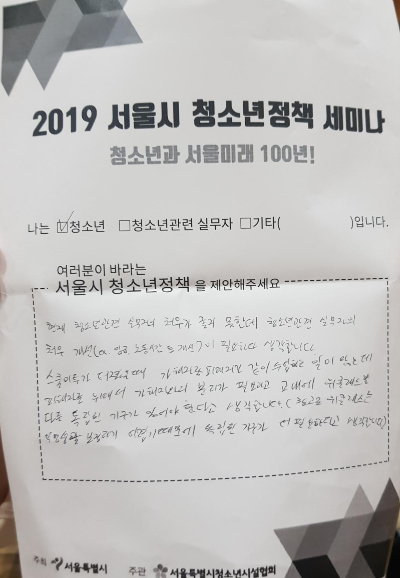 2019 서울시 청소년정책 세미나
청소년과 서울미래 100년!
나는 ☑청소년 □청소년관련 실무자 □기타( )입니다.
여러분이 바라는
서울시 청소년정책 을 제안해주세요
현재 청소년관련 실무자 처우가 좋지 못한데 청소년관련 실무자의
처우 개선(ex. 임금 노동시간 등 개선)이 필요하다 생각합니다
스쿨미투가 터졌을때 가해자와 피해자가 같이 수업받는 일이 있는데
피해자를 위해서 가해자와의 분리가 필요하고 교내에 위클래스말
다른 독립된 기구가 있어야 한다고 생각합니다. (학교 위클래스는
익명성을 보장하기 어렵기때문에 독립된 기구가 더 필요하다고 생각합니다)
주최 서울특별시 주관 서울특별시청소년시설협회